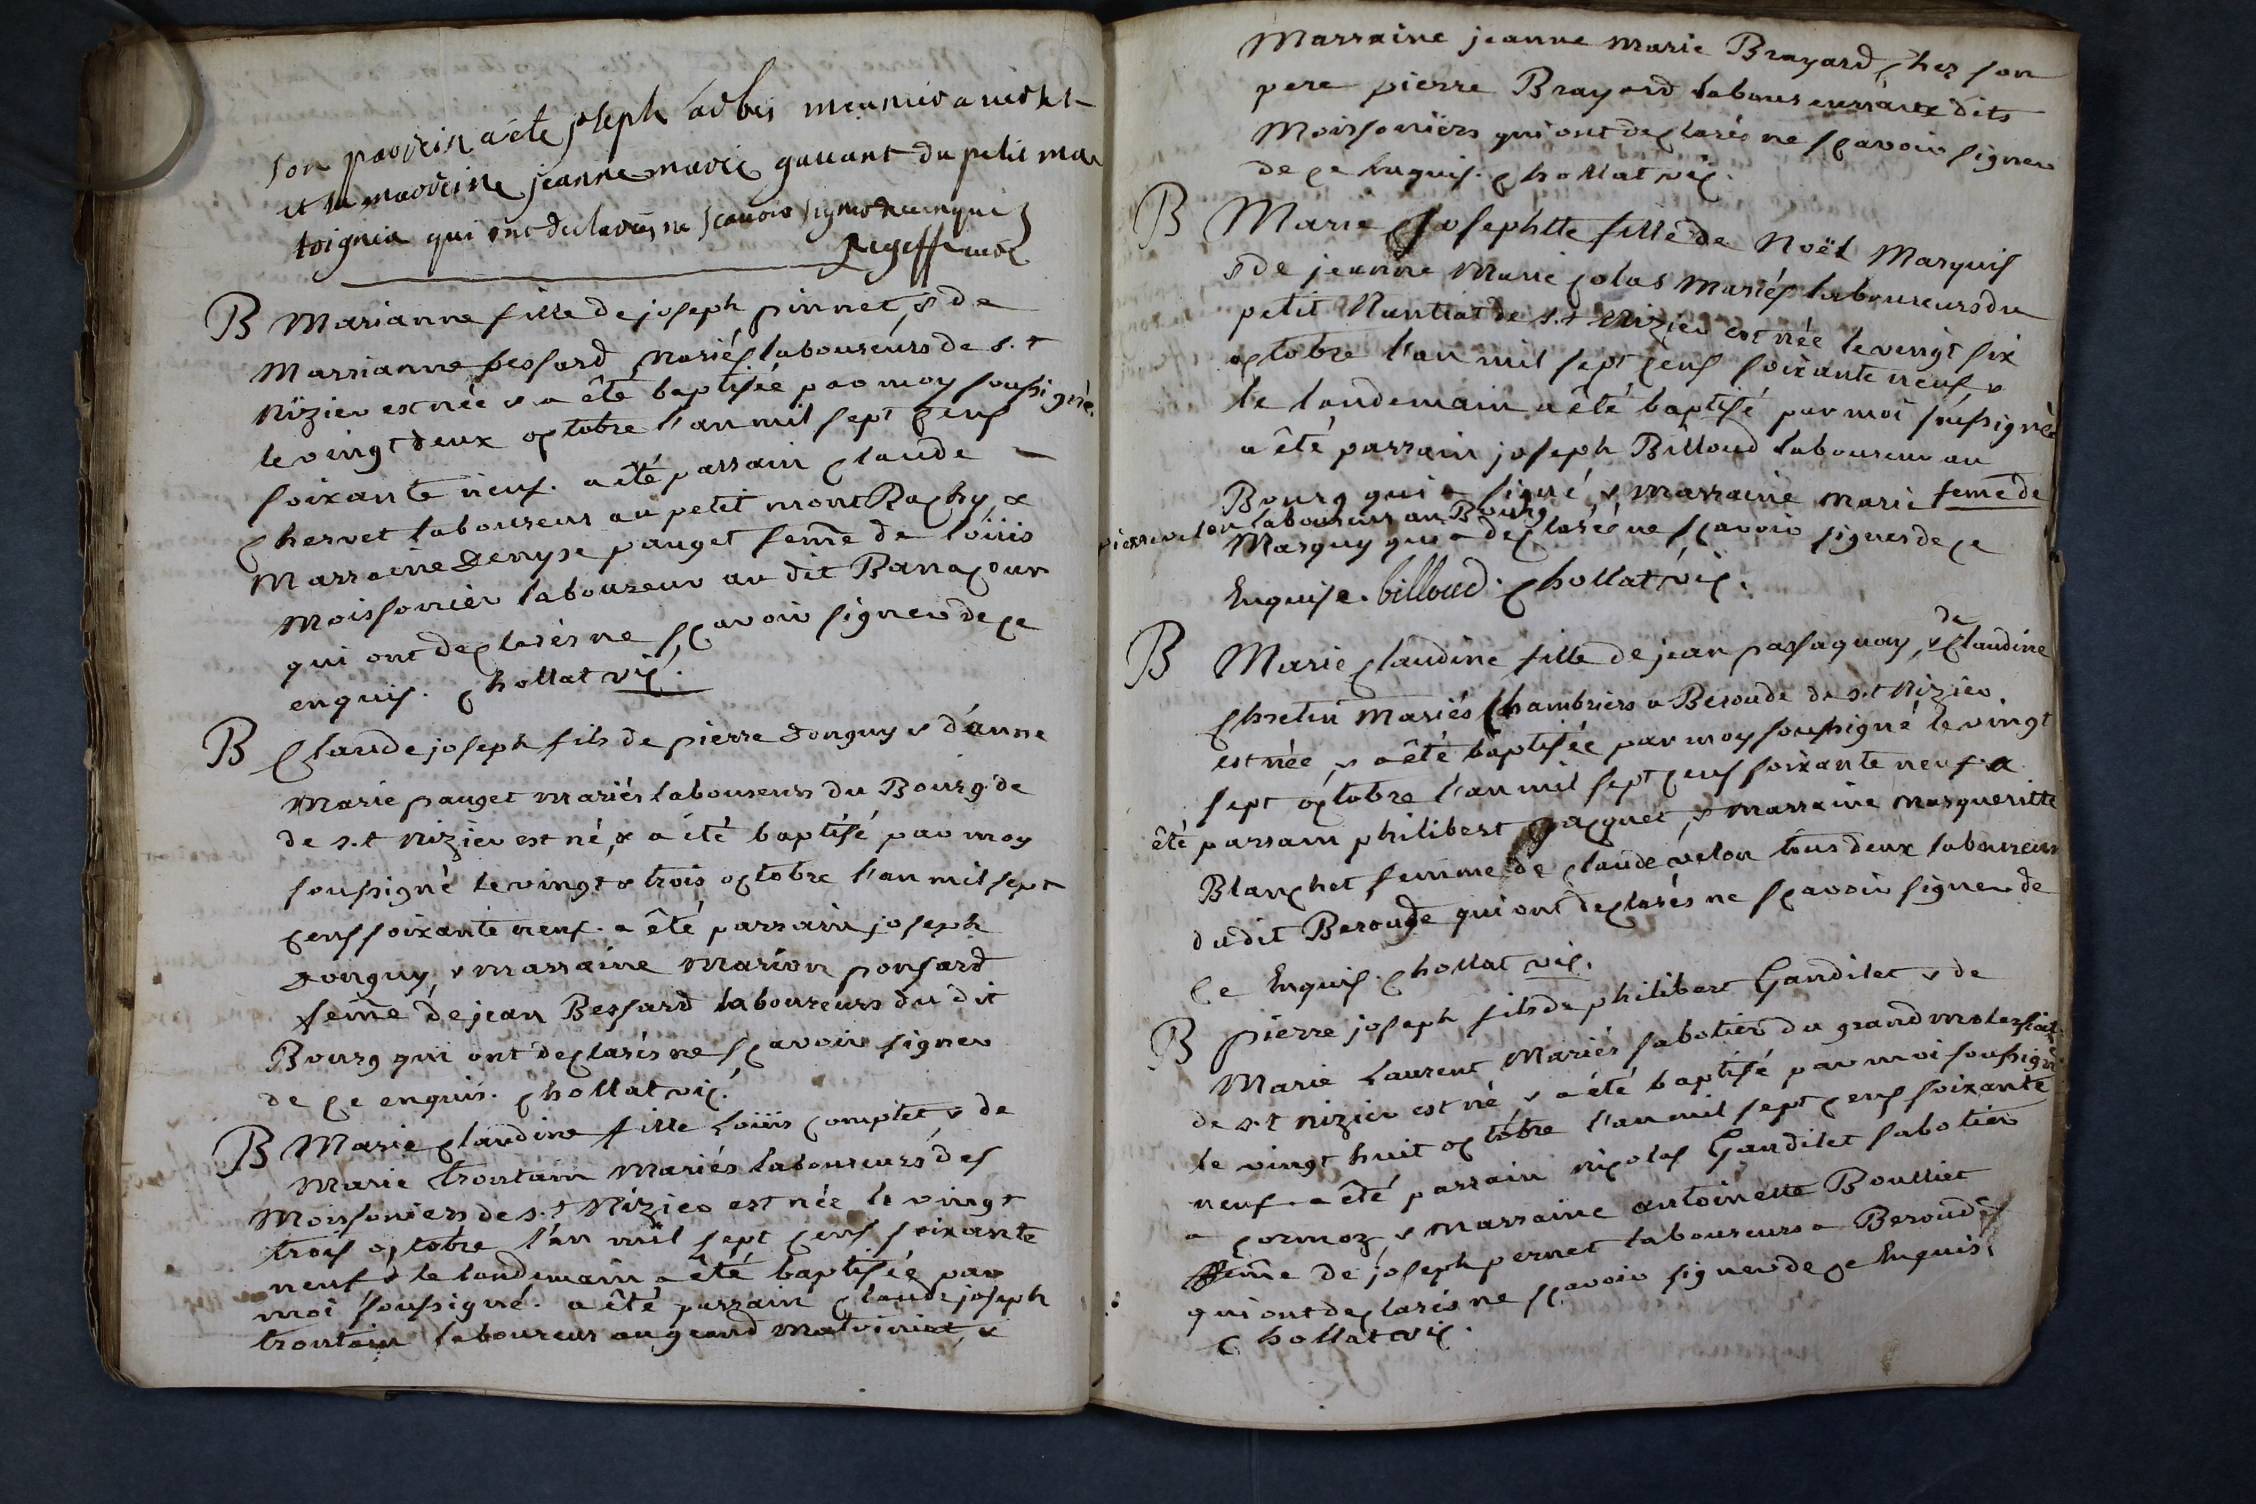 son parrein a été joseph
et la marreine jeanne marie gavant du petit mar
toignia qui ont declarés ne scavoir signer de ce enquis
B Marianne fille de joseph pinnet, & de
Marrianne bessard Mariés laboureurs de s.t
Nizier est née & a êté baptisée par moy soussigné
le vingt deux octobre l'an mil sept cens
soixante neuf. a êté parrain claude
chervet laboureur au petit montRachy, &
Marraine Denyse pauget feme de loüis
Moissonier laboureur au dit Banacour
qui ont declarés ne sçavoir signer de ce
enquis. chollat vic.
B Claude joseph fils de pierre Donguy & d'anne
Marie pauget mariés laboureurs du Bourg de
de s.t Nizier est né, & a été baptisé par moy
soussigné le vingt & trois octobre l'an mil sept
cens soixante neuf. a êté parrain joseph
Donguy, & marraine Marion ponsard
feme de jean Bessard laboureurs du dit
Bourg qui ont declarés ne sçavoir signer
de ce enquis. chollat vic.
B Marie claudine fille Loüis comptet, & de
Marie trontain Mariés laboureurs des
Moissoniers de s.t Nizier est née le vingt
trois octobre l'an mil sept cens soixante
neuf & le landemain a êté baptisée par
moi soussigné. a êté parrain claude joseph
trontain laboureur au grand &
Marraine jeanne marie Brayard chez son
pere pierre Brayard laboureurs aux dits
Moissoniers qui ont declarés ne sçavoir signer
de ce Enquis. chollat vic.
B Marie Josephtte fille de Noël Marquis
& de jeanne Marie colas Mariés laboureurs du
petit Nantiat de s.t Nizier est née le vingt six
octobre l'an mil sept cens soixante neuf &
le landemain a êté baptisé par moi soussigné
a êté parrain joseph Billoud laboureur au
Bourg qui a signé, & marraine Marie feme de
pierre velon laboureur au Bourg
Marguy qui a declarée ne sçavoir signer de ce
Enquise. billoud. chollat vic.
B Marie claudine fille de jean passaquay, & de claudine
chretin Mariés Chambriers a Beroude de s.t Nizier
est née, & a êté baptisée par moy soussigné le vingt
sept octobre l'an mil sept cens soixante neuf. a
êté parrain philibert jacquet, & marraine Margueritte
Blanchet femme de claude velon tous deux laboureurs
du dit Beroude qui ont declarés ne sçavoir signer de
ce Enquis. chollat vic.
B pierre joseph fils de philibert Gandilet & de
Marie Laurent Mariés sabotier du grand molarsiat
de s.t nizier est né, & a été baptisé par moi soussigné
le vingt huit octobre l'an mil sept cens soixante
neuf. a êté parrain nicolas Gandilet sabotier
a cormoz, & Marraine antoinette Boulliet
feme de joseph pernet laboureurs a Beroude
qui ont declarés ne sçavoir signer de ce Enquis.
chollat vic.